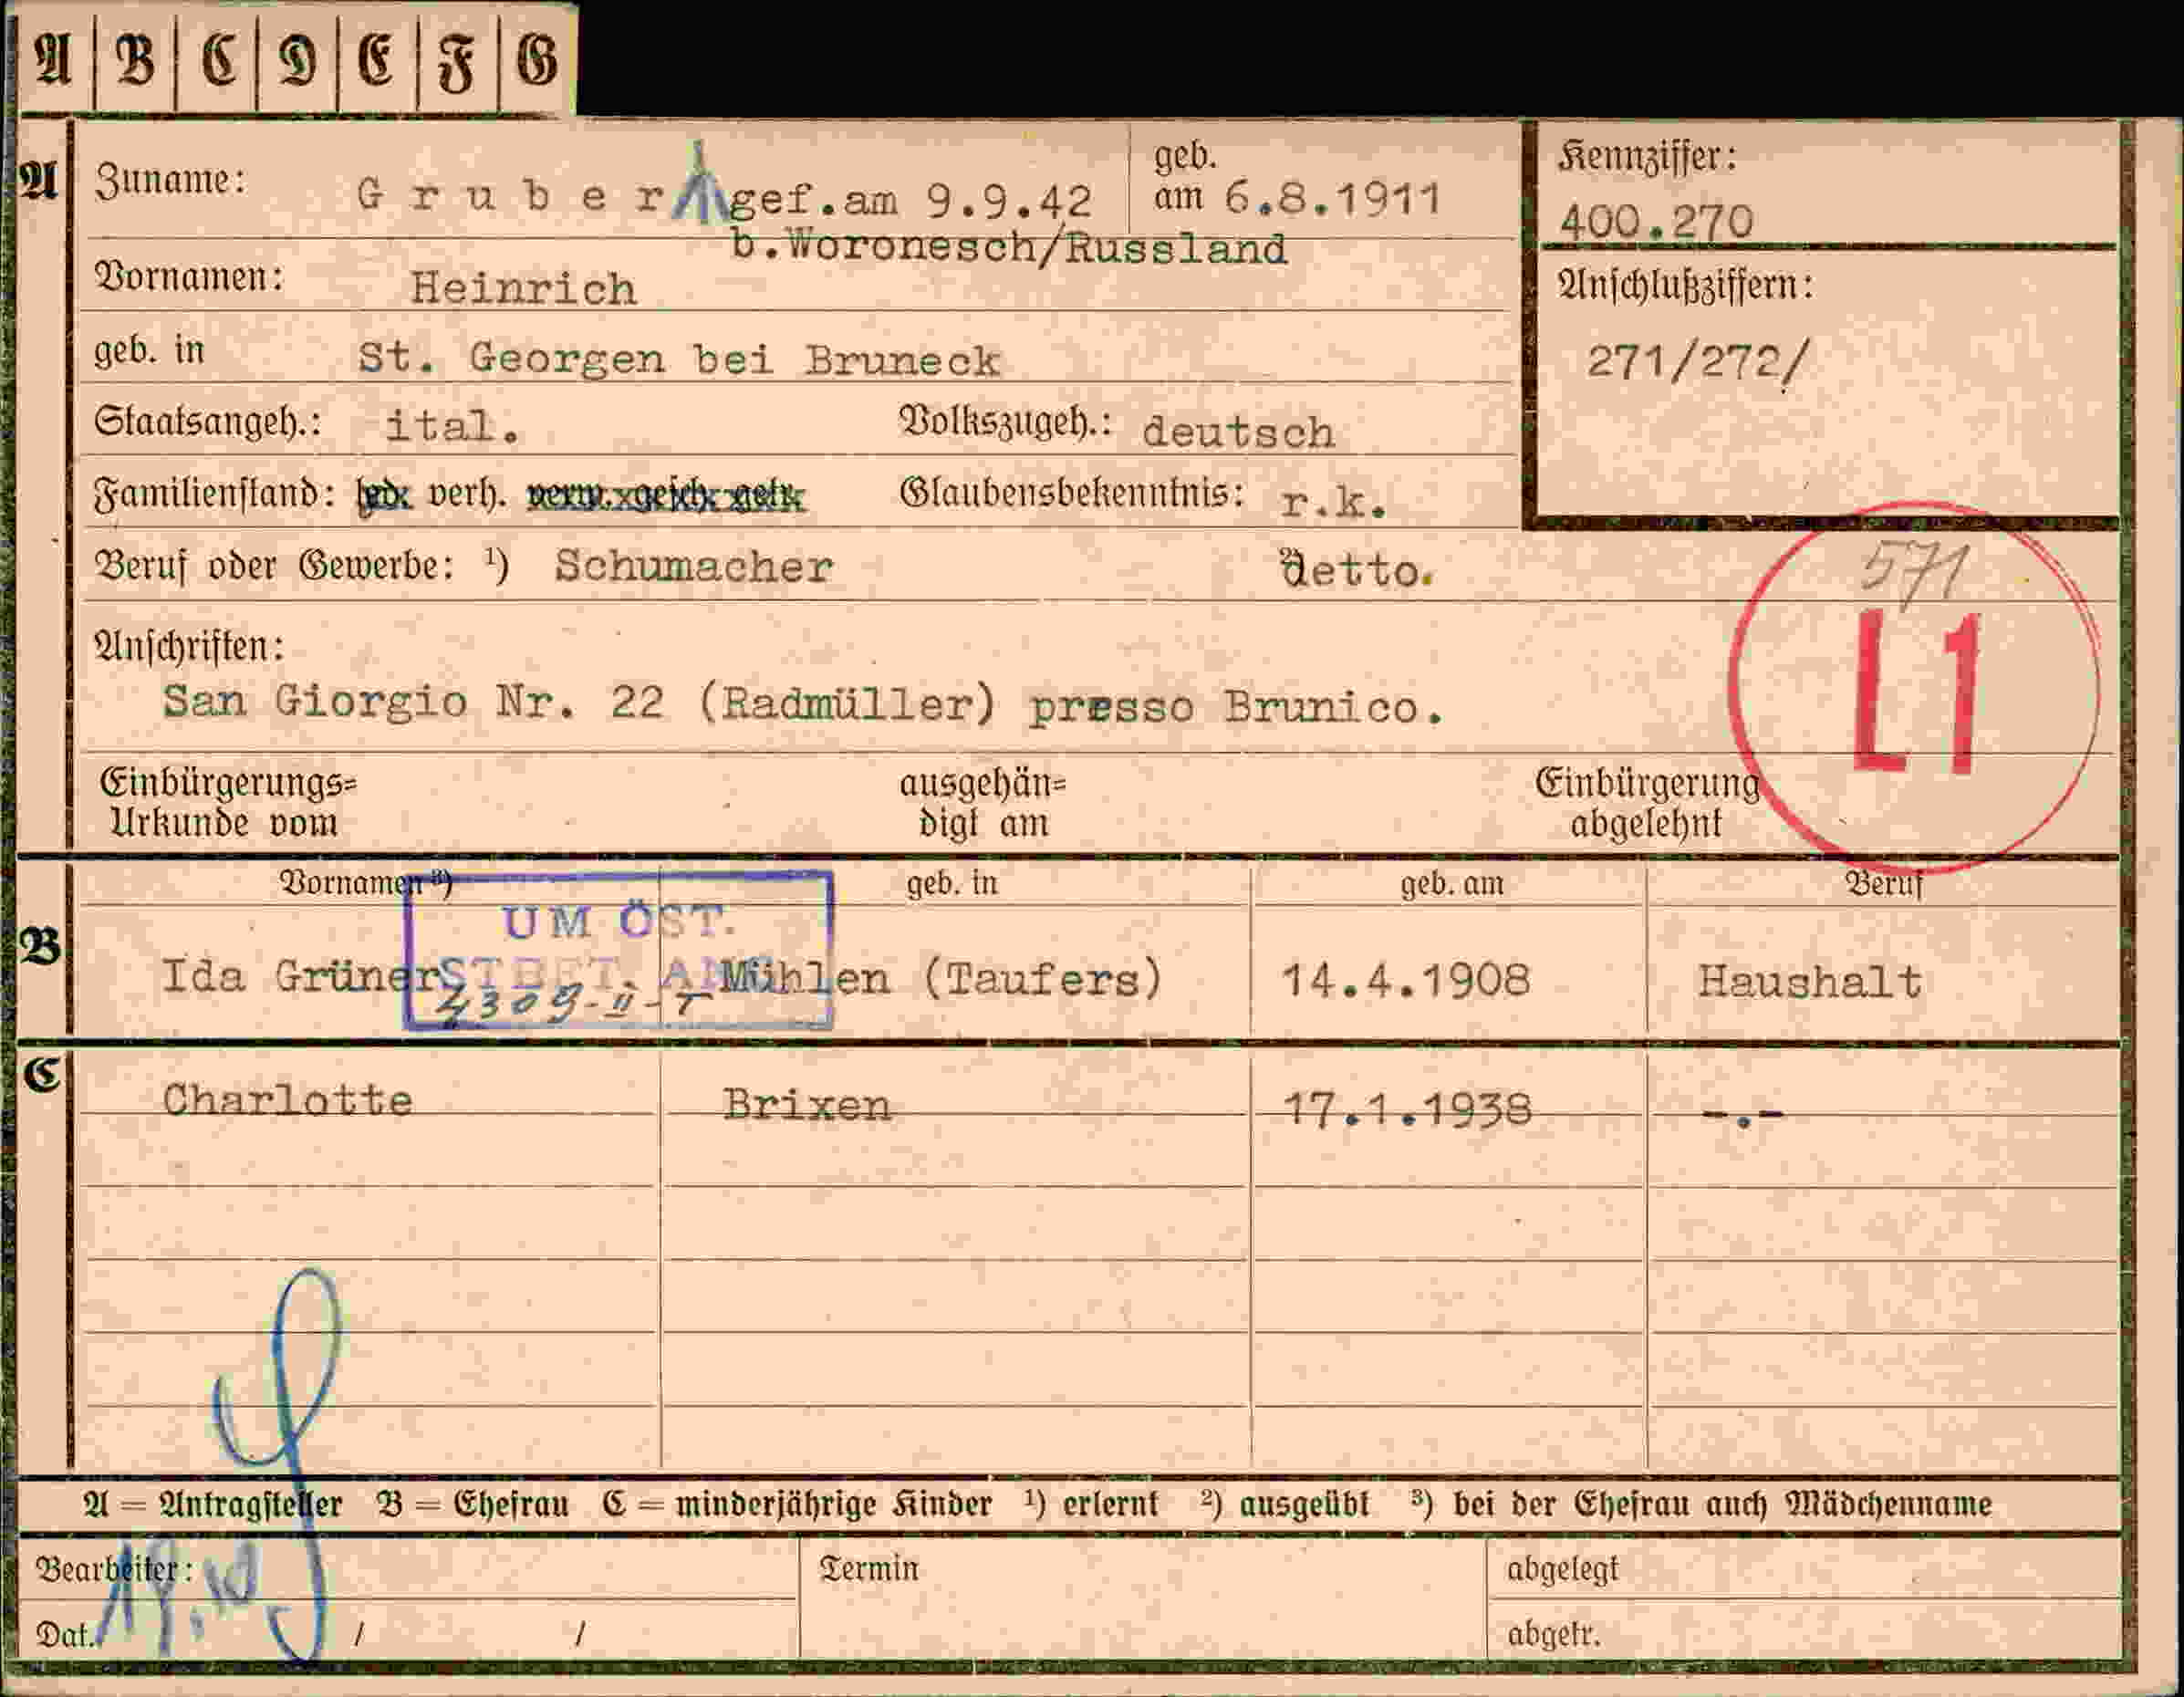 A B C D E F G
A Zuname: Gruber gef.am 9.9.42 geb. am 6.8.1911
b.Woronesch/Russland
Kennziffer:
400.270
Vornamen: Heinrich
Anschlußziffern:
271/272/
geb. in St. Georgen bei Bruneck
Staatsangeh.: ital. Volkszugeh.: deutsch
Familienstand: led. verh. verw. gesch. getr. Glaubensbekenntnis: r.k.
Beruf oder Gewerbe: ¹) Schumacher ²) detto.
571
L1
Anschriften:
San Giorgio Nr. 22 (Radmüller) presso Brunico.
Einbürgerungs=
Urkunde vom
ausgehän=
digt am
Einbürgerung
abgelehnt
Vornamen ³) geb. in geb. am Beruf
UM ÖST.
B Ida Grüner Mühlen (Taufers) 14.4.1908 Haushalt
4309-II-T
C Charlotte Brixen 17.1.1938 -.-
A = Antragsteller B = Ehefrau C = minderjährige Kinder ¹) erlernt ²) ausgeübt ³) bei der Ehefrau auch Mädchenname
Bearbeiter: Termin abgelegt
Dat. / / abgetr.